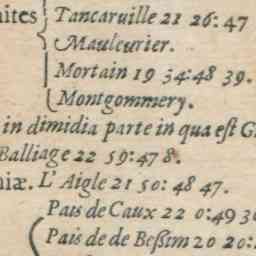 ites Tancaruille 21 26: 47
Mauleurier.
Mortain 19 34: 48 39.
Montgommery.
in dimidia parte in qua est G
Balliage 22 59: 47 8.
niæ. L'Aigle 21 50: 48 47.
Pais de Caux 22 0: 49 3
Pais de de Bessim 20 20: